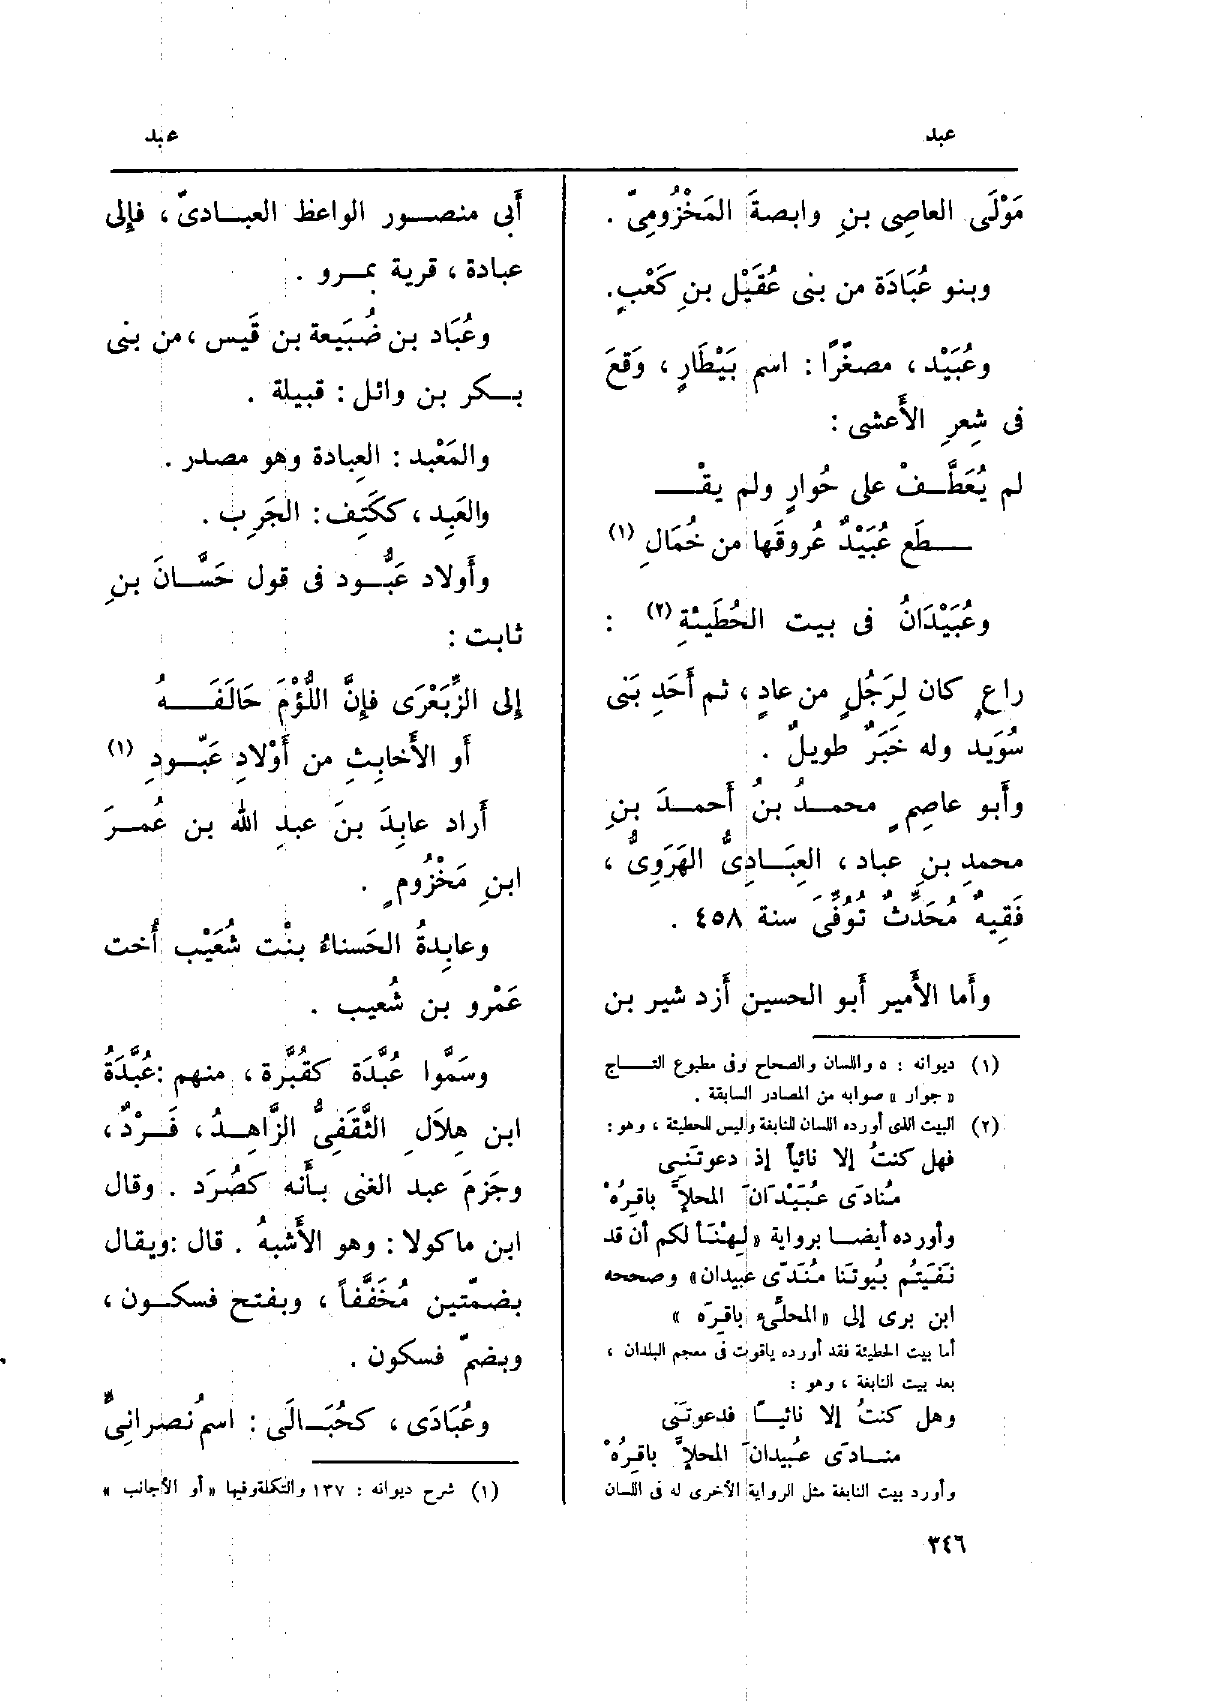 عبد
عبد
مَوْلَى العاصِى بنِ وابصةَ المَخْزُومِىّ .
وبنو عُبَادَة من بنى عُقَيْل بنِ كَعْبٍ.
وعُبَيْد ، مصغّرًا : اسم بَيْطَارٍ ، وَقعَ
فى شِعرِ الأَعشى :
لم يُعَطَّـفْ على حُوارٍ ولم يقْـــ
ـــطَع عُبَيْدٌ عُروقَها من خُمَالِ (١)
وعُبَيْدَانُ فى بيت الحُطَيئةِ (٢) :
راعٍ كان لِرَجُلٍ من عادٍ ، ثم أَحَدِ بَنى
سُوَيد وله خَبَرٌ طويلٌ .
وأَبو عاصِمٍ محمــدُ بنُ أَحمــدَ بنِ
محمدِ بنِ عباد ، العِبَــادِىُّ الهَرَوِىُّ ،
فَقِيهٌ مُحَدِّثٌ تُوُفِّىَ سنة ٤٥٨ .
وأَما الأَمير أَبو الحسين أَزد شير بن
(١) ديوانه : ٥ واللسان والصحاح وفى مطبوع التـــاج
« جوار » صوابه من المصادر السابقة .
(٢) البيت الذى أورده اللسان للنابغة وليس للحطيئة ، وهو :
فهل كنتُ إلا نائياً إذ دعوتَنِى
مُنادَى عُبَيْدَانَ المحلَّإِ باقِرُهْ
وأورده أيضــا برواية « لِيهْنَأ لكم أن قد
نَفَيتُم بُيوتَنا مُنَدَّى عبيدان» وصححه
ابن برى إلى «المحلَّىءِ باقرَه »
أما بيت الحطيئة فقد أورده ياقوت فى معجم البلدان ،
بعد بيت النابغة ، وهو :
وهل كنتُ إلا نائيــًا فدعوتَنى
منــادَى عُبيدانَ المحلَّإِ باقِرُهْ
وأورد بيت النابغة مثل الرواية الأخرى له فى اللسان
أَبى منصــور الواعظ العبــادىّ ، فإلى
عبادة ، قرية بمـرو .
وعُبَاد بن ضُبَيعة بن قَيس ، من بنى
بــكر بن وائل : قبيلة .
والمَعْبد : العِبادة وهو مصدر .
والعَبِد ، ككَتِف : الجَرِب .
وأَولاد عَبُّــود فى قول حَسَّــانَ بنِ
ثابت :
إلى الزِّبَعْرَى فإنَّ اللُّؤْمَ حَالَفَـــهُ
أَو الأَخابِثِ من أَوْلادِ عَبّــودِ (١)
أَراد عابِدَ بنَ عبدِ الله بن عُمــرَ
ابنِ مَخْزُومٍ .
وعابِدةُ الحَسناءُ بنْت شُعَيْب أُخت
عَمْرو بن شُعيب .
وسَمَّوا عُبَّدَة كقُبَّرة ، منهم : عُبَّدَةُ
ابن هِلَالٍ الثَّقَفِىُّ الزَّاهِــدُ ، فَــرْدٌ ،
وجَزمَ عبد الغنى بـأَنه كصُرَد . وقال
ابن ماكولا : وهو الأَشبهُ . قال : ويقال
بضمّتين مُخَفَّفاً ، وبفتح فسكــون ،
وبضمّ فسكون .
وعُبَادَى ، كحُبَــالَى : اسمُ نصرانىٍّ
(١) شرح ديوانه : ١٣٧ والتكلة وفيها « أو الأجانب »
٣٤٦